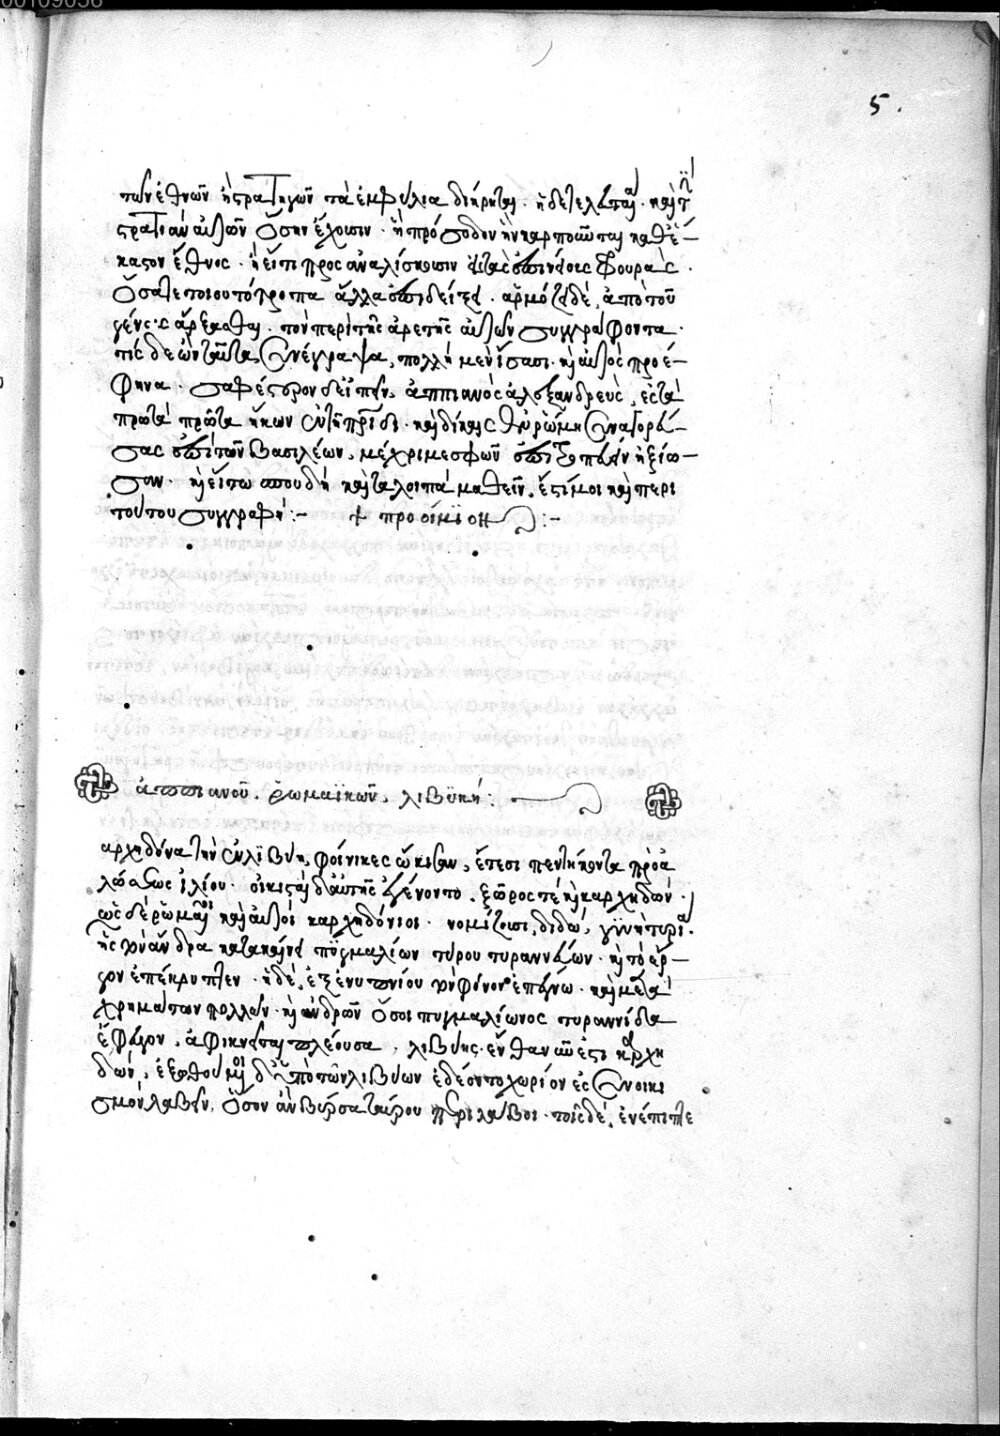 00109056
5.
τῶν ἐθνῶν ἢ στρατηγῶν τὰ ἐμφύλια διήρηται. ἡ δὲ τελευταία καὶ τὴν
στρατιὰν αὐτῶν ὅσην ἔχουσιν. ἢ πρόσοδον ἣν καρποῦνται καθ' ἕ-
καστον ἔθνος. ἢ εἴ τι πρὸς ἀναλίσκουσιν ἐς τὰς ἐπινείους φρουρὰς.
ὅσα τε τοιουτότροπα ἄλλα ἐπιδείξει. ἁρμόζει δὲ, ἀπὸ τοῦ
γένους ἄρξασθαι. τὸν περὶ τῆς ἀρετῆς αὐτῶν συγγράφοντα.
τίς δὲ ὢν ταῦτα συνέγραψα, πολλοὶ μὲν ἴσασι. καὶ αὐτὸς προέ-
φηνα. σαφέστερον δ' εἰπεῖν, ἀππιανὸς ἀλεξανδρεὺς, ἐς τὰ
πρῶτα ἥκων ἐν τῇ πατρίδι. καὶ δίκαις ἐν ῥώμῃ συναγορεύ-
σας ἐπὶ τῶν βασιλέων, μέχρι με σφῶν ἐπιτροπεύειν ἠξίω-
σαν. καὶ εἴ τῳ σπουδὴ καὶ τὰ λοιπὰ μαθεῖν, ἔστι μοι καὶ περὶ
τούτου συγγραφή:- + προοίμιον :-
ἀππιανοῦ. ῥωμαϊκῶν. λιβϋκή:
αρχηδόνα τὴν ἐν λιβύῃ, φοίνικες ᾤκισαν, ἔτεσι πεντήκοντα πρὸ ἁ
λώσεως ἰλίου. οἰκισταὶ δ' αὐτῆς ἐγένοντο. ζῶρός τε καὶ καρχηδών.
ὡς δὲ ῥωμαῖοι καὶ αὐτοὶ καρχηδόνιοι. νομίζουσι, διδώ, γυνὴ τυρία.
ἧς τὸν ἄνδρα κατακαίνει πυγμαλίων τύρου τυραννεύων. καὶ τὸ ἔρ-
γον ἐπέκρυπτεν. ἡ δὲ, ἐξ ἐνυπνίου τὸν φόνον ἐπέγνω. καὶ μετὰ
χρημάτων πολλῶν. καὶ ἀνδρῶν ὅσοι πυγμαλίωνος τυραννίδα
ἔφευγον, ἀφικνεῖται πλέουσα, λιβύης. ἔνθα νῦν ἐστι καρχη
δών, ἐξωθούμενοι δ' ὑπὸ τῶν λιβύων ἐδέοντο χωρίον ἐς συνοικι
σμὸν λαβεῖν, ὅσον ἂν βύρσα ταύρου περιλάβοι. τοῖς δὲ, ἐνέπιπτε